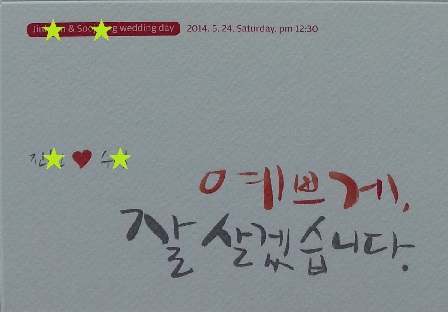 & wedding day 2014. 5. 24. Saturday. pm 12:30
예쁘게,
잘 살겠습니다.